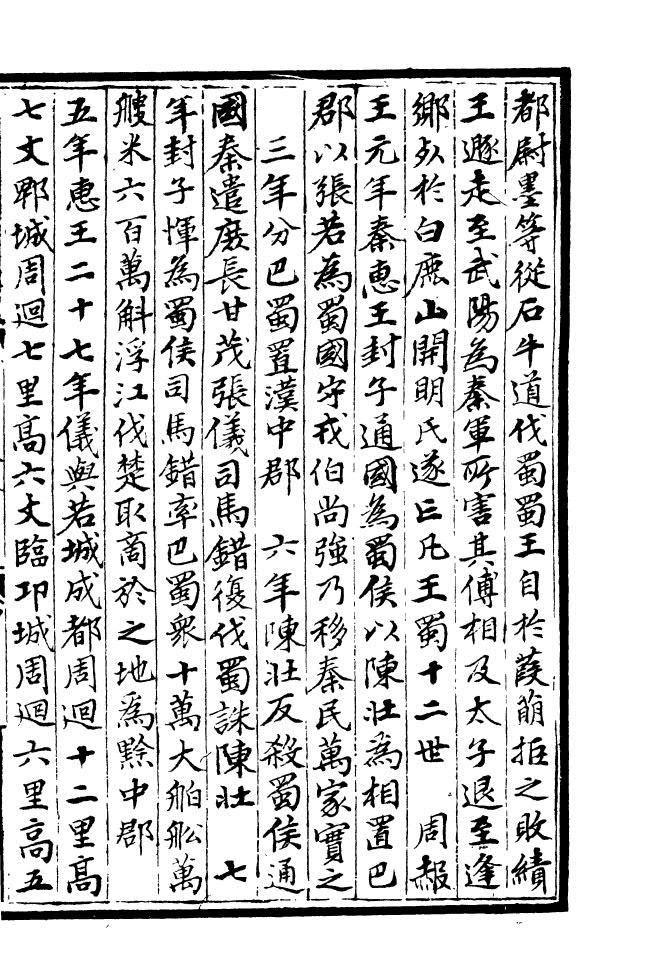 都尉墨等從石牛道伐蜀蜀王自於葭萌拒之敗績
王遯走至武陽為秦軍所害其傅相及太子退至逢
鄉死於白鹿山開明氏遂亡凡王蜀十二世　周赧
王元年秦惠王封子通國為蜀侯以陳壯為相置巴
郡以張若為蜀國守戎伯尚強乃移秦民萬家實之
三年分巴蜀置漢中郡　六年陳壯反殺蜀侯通
國秦遣庶長甘茂張儀司馬錯復伐蜀誅陳壯　七
年封子惲為蜀侯司馬錯率巴蜀衆十萬大舶舩萬
艘米六百萬斛浮江伐楚取商於之地為黔中郡
五年惠王二十七年儀與若城成都周迴十二里髙
七丈郫城周迴七里髙六丈臨邛城周迴六里高五